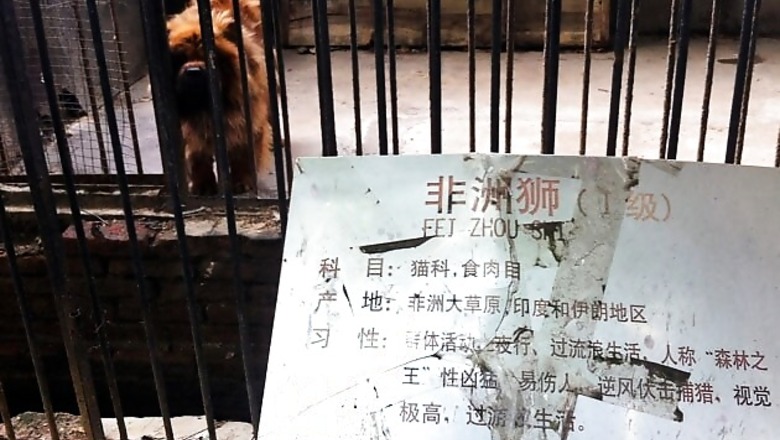 非洲狮（I级）
FEJ ZHOU SHI
科 目：猫科，食肉目
产 地：非洲大草原，印度和伊朗地区
习 性：群体活动、夜行、过流浪生活，人称“森林之
王”性凶猛，易伤人，逆风伏击捕猎、视觉
极高，过游 生活。